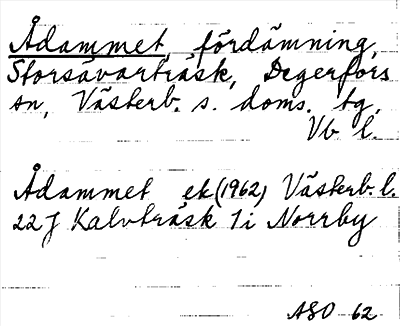 Ådammet, fördämning,
Storsävarträsk, Degerfors
sn, Västerb. s. doms. tg,
Vb l.
Ådammet ek (1962) Västerb. l.
22 J Kalvträsk 1 i Norrby
ASO 62